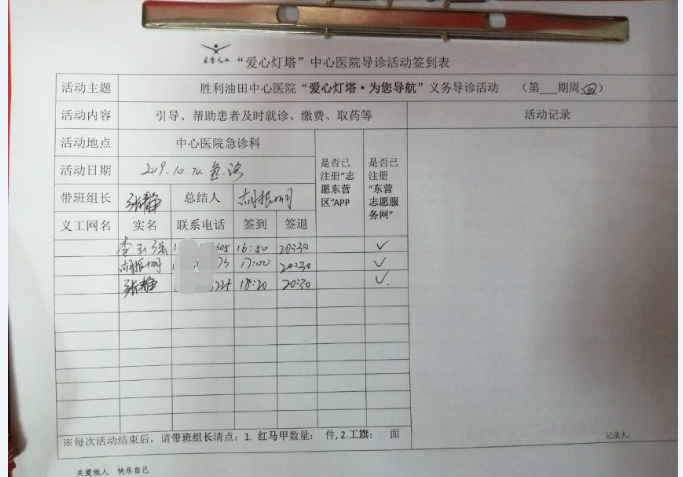 “爱心灯塔”中心医院导诊活动签到表
活动主题 胜利油田中心医院“爱心灯塔·为您导航”义务导诊活动 (第 期周四)
活动内容 引导、帮助患者及时就诊、缴费、取药等 活动记录
活动地点 中心医院急诊科
活动日期 2019.10.
带班组长 张静 总结人
是否已注册“志愿东营区”APP
是否已注册“东营志愿服务网”
义工网名 实名 联系电话 签到 签退
李玉强 16:50 20:30 ✓
17:00 20:30 ✓
张静 18:20 20:30 ✓
※每次活动结束后,请带班组长清点:1. 红马甲数量: 件,2.工旗: 面
记录人:
关爱他人 快乐自己